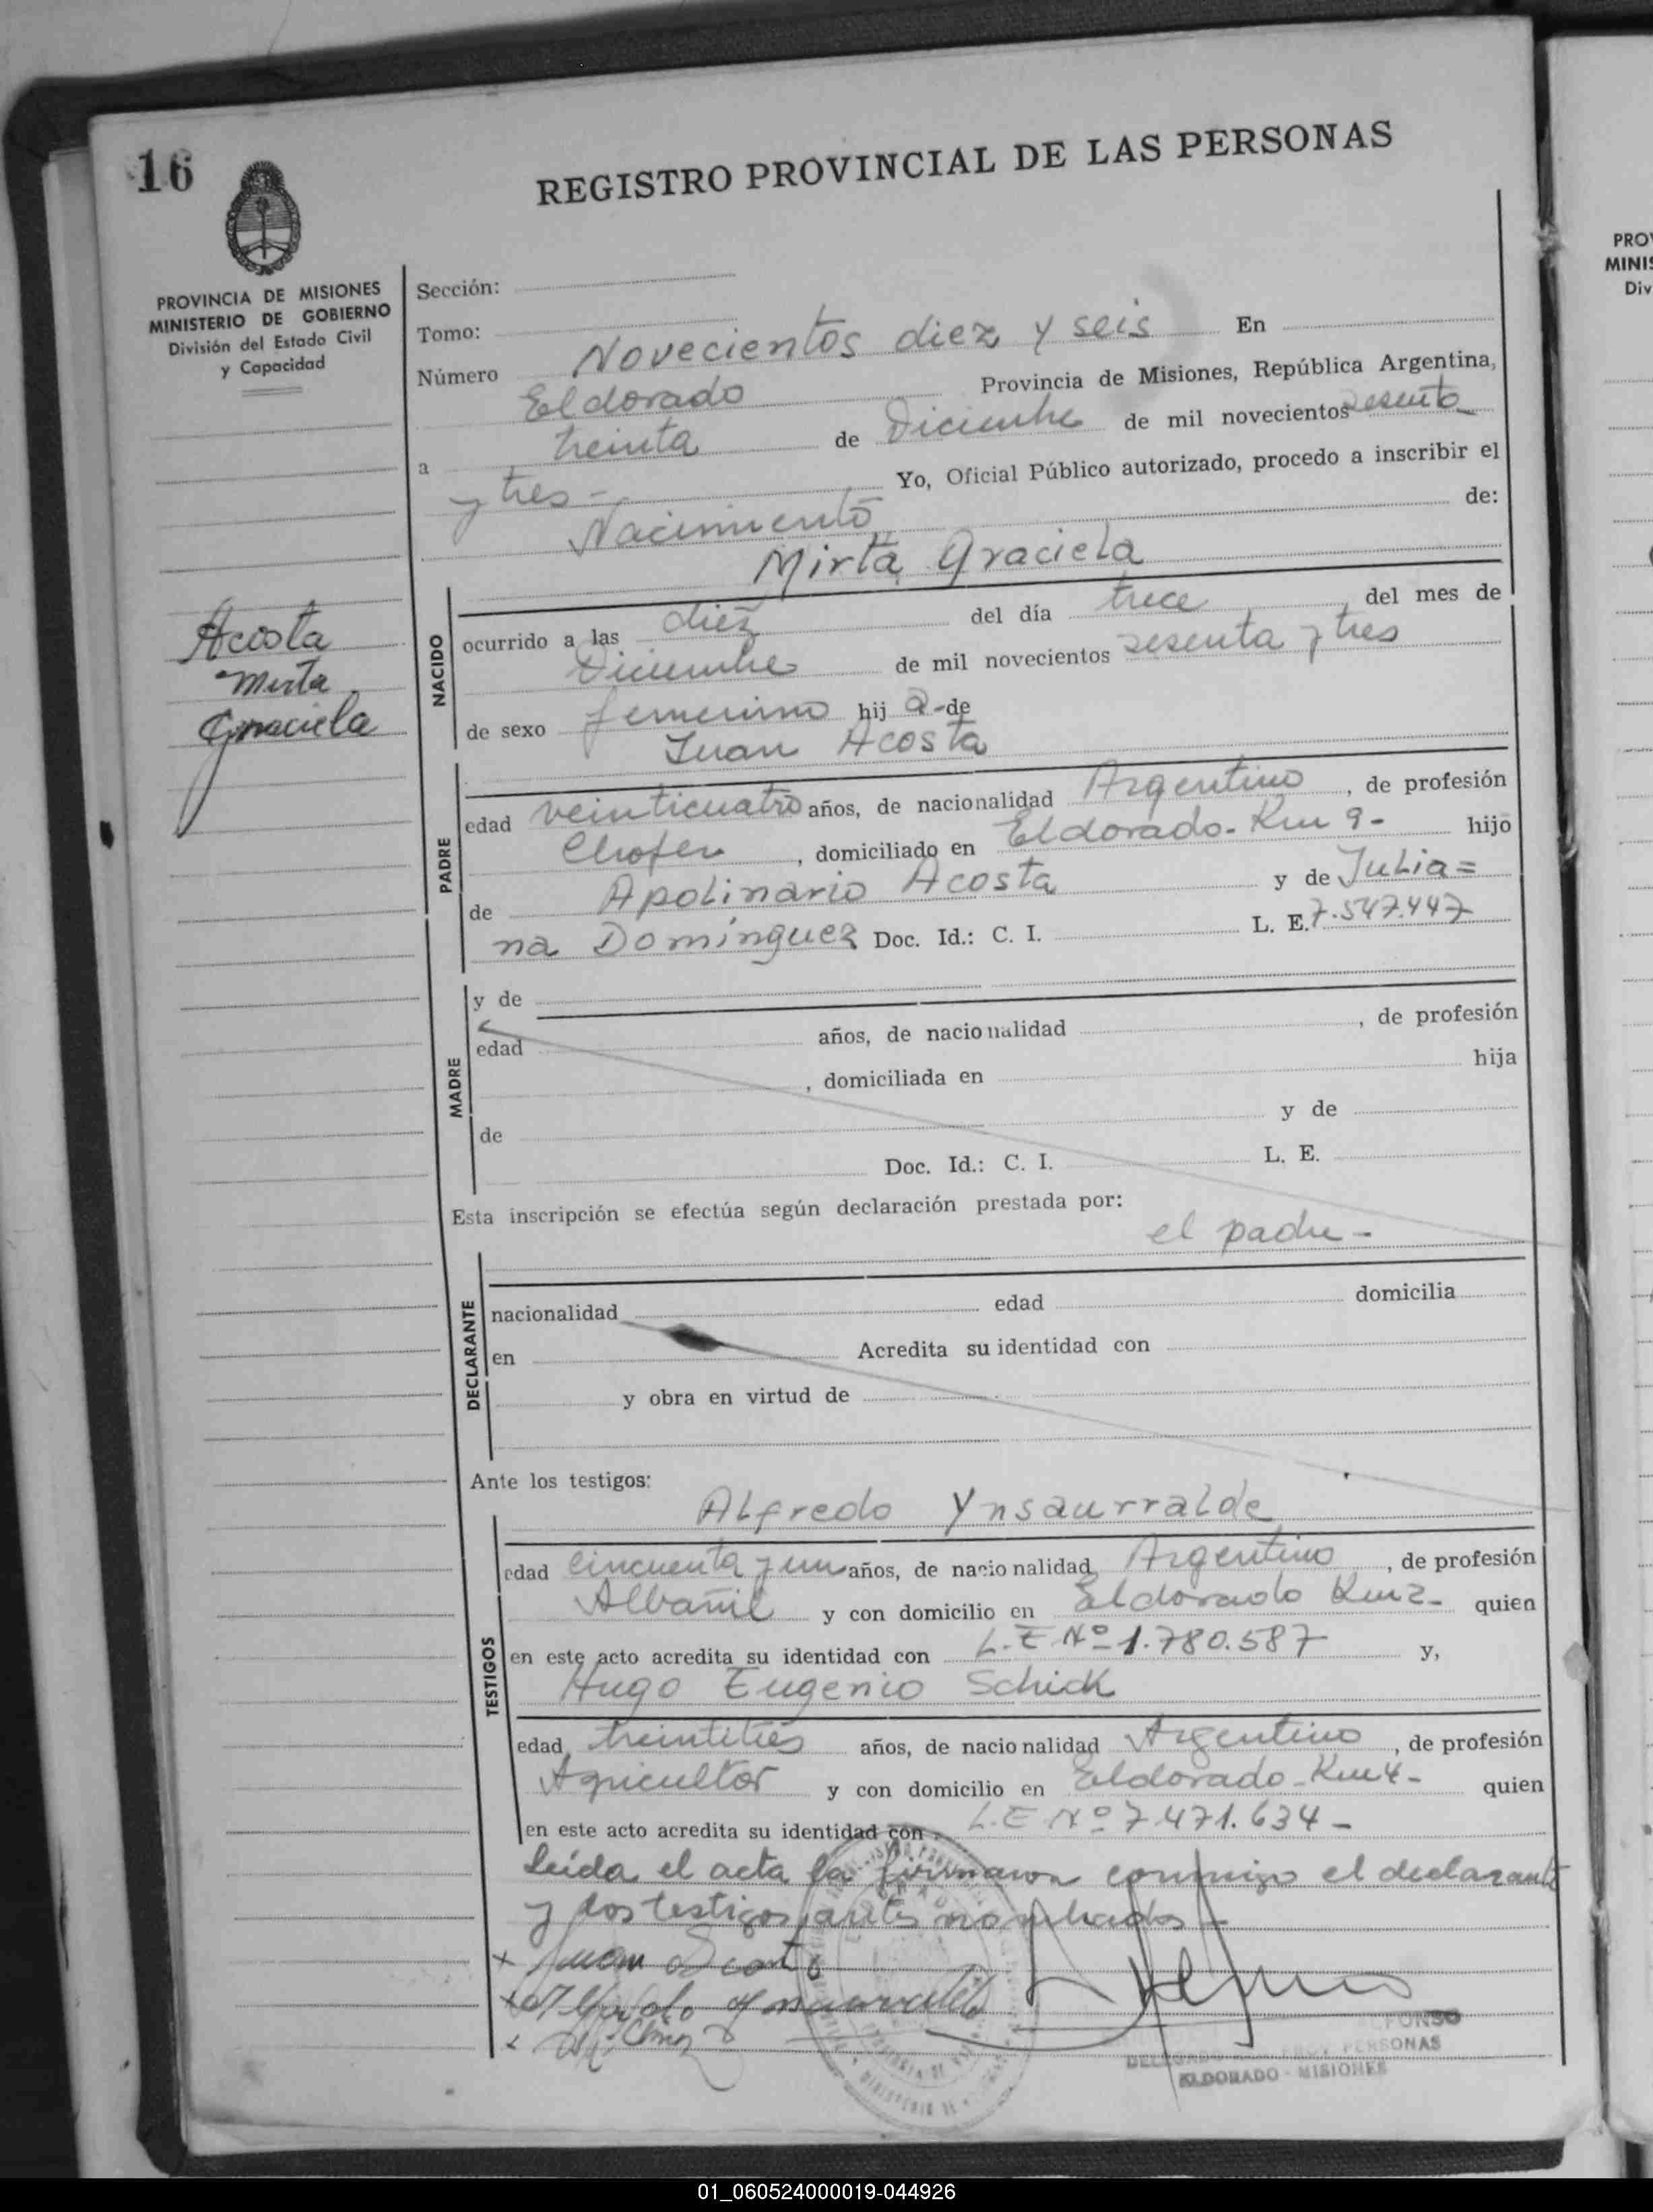 16
REGISTRO PROVINCIAL DE LAS PERSONAS
PROVINCIA DE MISIONES
MINISTERIO DE GOBIERNO
División del Estado Civil
y Capacidad
Sección:
Tomo:
Número Novecientos diez y seis En
Eldorado Provincia de Misiones, República Argentina,
a treinta de Diciembre de mil novecientos sesenta
y tres - Yo, Oficial Público autorizado, procedo a inscribir el
Nacimiento de:
Mirta Graciela
Acosta
Mirta
Graciela
NACIDO
ocurrido a las diez del día trece, del mes de
Diciembre de mil novecientos sesenta y tres
de sexo femenino hij a-de
Juan Acosta
PADRE
edad veinticuatro años, de nacionalidad Argentino, de profesión
Chofer, domiciliado en Eldorado-Km 9- hijo
de Apolinario Acosta y de Julia=
na Domínguez Doc. Id.: C. I. L. E. 7.547.447
MADRE
y de
edad años, de nacionalidad, de profesión
, domiciliada en hija
de y de
Doc. Id.: C. I. L. E.
Esta inscripción se efectúa según declaración prestada por:
el padre -
DECLARANTE
nacionalidad edad domicilia
en Acredita su identidad con
y obra en virtud de
Ante los testigos:
Alfredo Ynsaurralde
TESTIGOS
edad cincuenta y un años, de nacionalidad Argentino, de profesión
Albañil y con domicilio en Eldorado Km 2- quien
en este acto acredita su identidad con L.E Nº 1.780.587 y,
Hugo Eugenio Schick
edad treintitres años, de nacionalidad Argentino, de profesión
Agricultor y con domicilio en Eldorado-Km 4- quien
en este acto acredita su identidad con L.E Nº 7.471.634-
Leída el acta la firmaron conmigo el declarante
y los testigos antes nombrados -
x Juan Acosta
x Alfredo Ynsaurralde
x
PERSONAS
ELDORADO - MISIONES
PROV
MINIS
Div
01_060524000019-044926